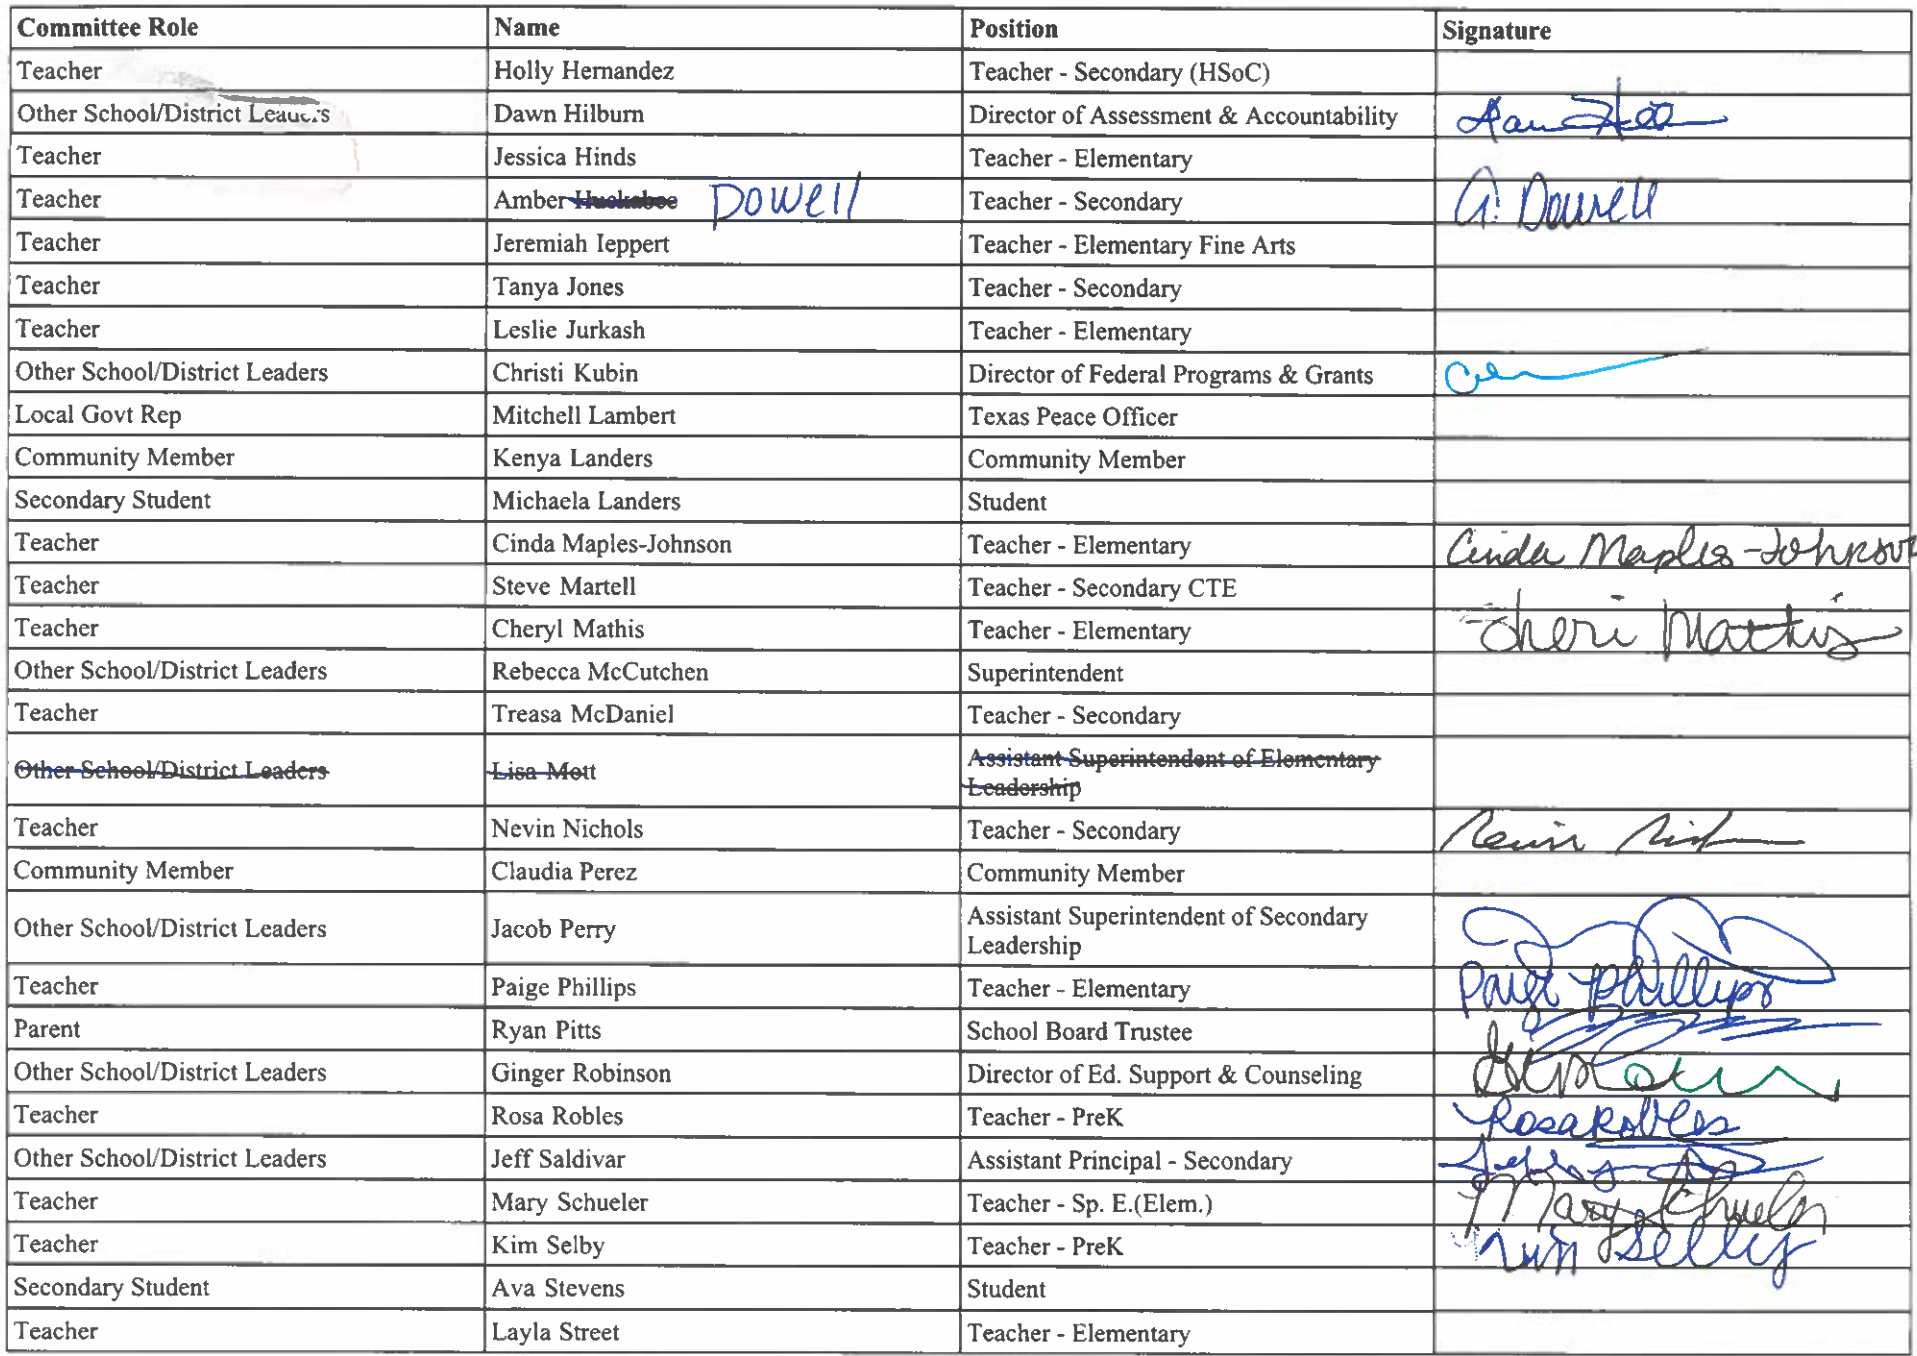 Committee Role Name Position Signature
Teacher Holly Hernandez Teacher - Secondary (HSoC)
Other School/District Leaders Dawn Hilburn Director of Assessment & Accountability
Teacher Jessica Hinds Teacher - Elementary
Teacher Amber Huckabee Dowell Teacher - Secondary A. Dowell
Teacher Jeremiah Ieppert Teacher - Elementary Fine Arts
Teacher Tanya Jones Teacher - Secondary
Teacher Leslie Jurkash Teacher - Elementary
Other School/District Leaders Christi Kubin Director of Federal Programs & Grants
Local Govt Rep Mitchell Lambert Texas Peace Officer
Community Member Kenya Landers Community Member
Secondary Student Michaela Landers Student
Teacher Cinda Maples-Johnson Teacher - Elementary Cinda Maples-Johnson
Teacher Steve Martell Teacher - Secondary CTE
Teacher Cheryl Mathis Teacher - Elementary Cheri Mathis
Other School/District Leaders Rebecca McCutchen Superintendent
Teacher Treasa McDaniel Teacher - Secondary
Other School/District Leaders Lisa Mott Assistant Superintendent of Elementary
Leadership
Teacher Nevin Nichols Teacher - Secondary
Community Member Claudia Perez Community Member
Other School/District Leaders Jacob Perry Assistant Superintendent of Secondary
Leadership
Teacher Paige Phillips Teacher - Elementary Paige Phillips
Parent Ryan Pitts School Board Trustee
Other School/District Leaders Ginger Robinson Director of Ed. Support & Counseling
Teacher Rosa Robles Teacher - PreK Rosa Robles
Other School/District Leaders Jeff Saldivar Assistant Principal - Secondary
Teacher Mary Schueler Teacher - Sp. E.(Elem.) Mary Schueler
Teacher Kim Selby Teacher - PreK Kim Selby
Secondary Student Ava Stevens Student
Teacher Layla Street Teacher - Elementary